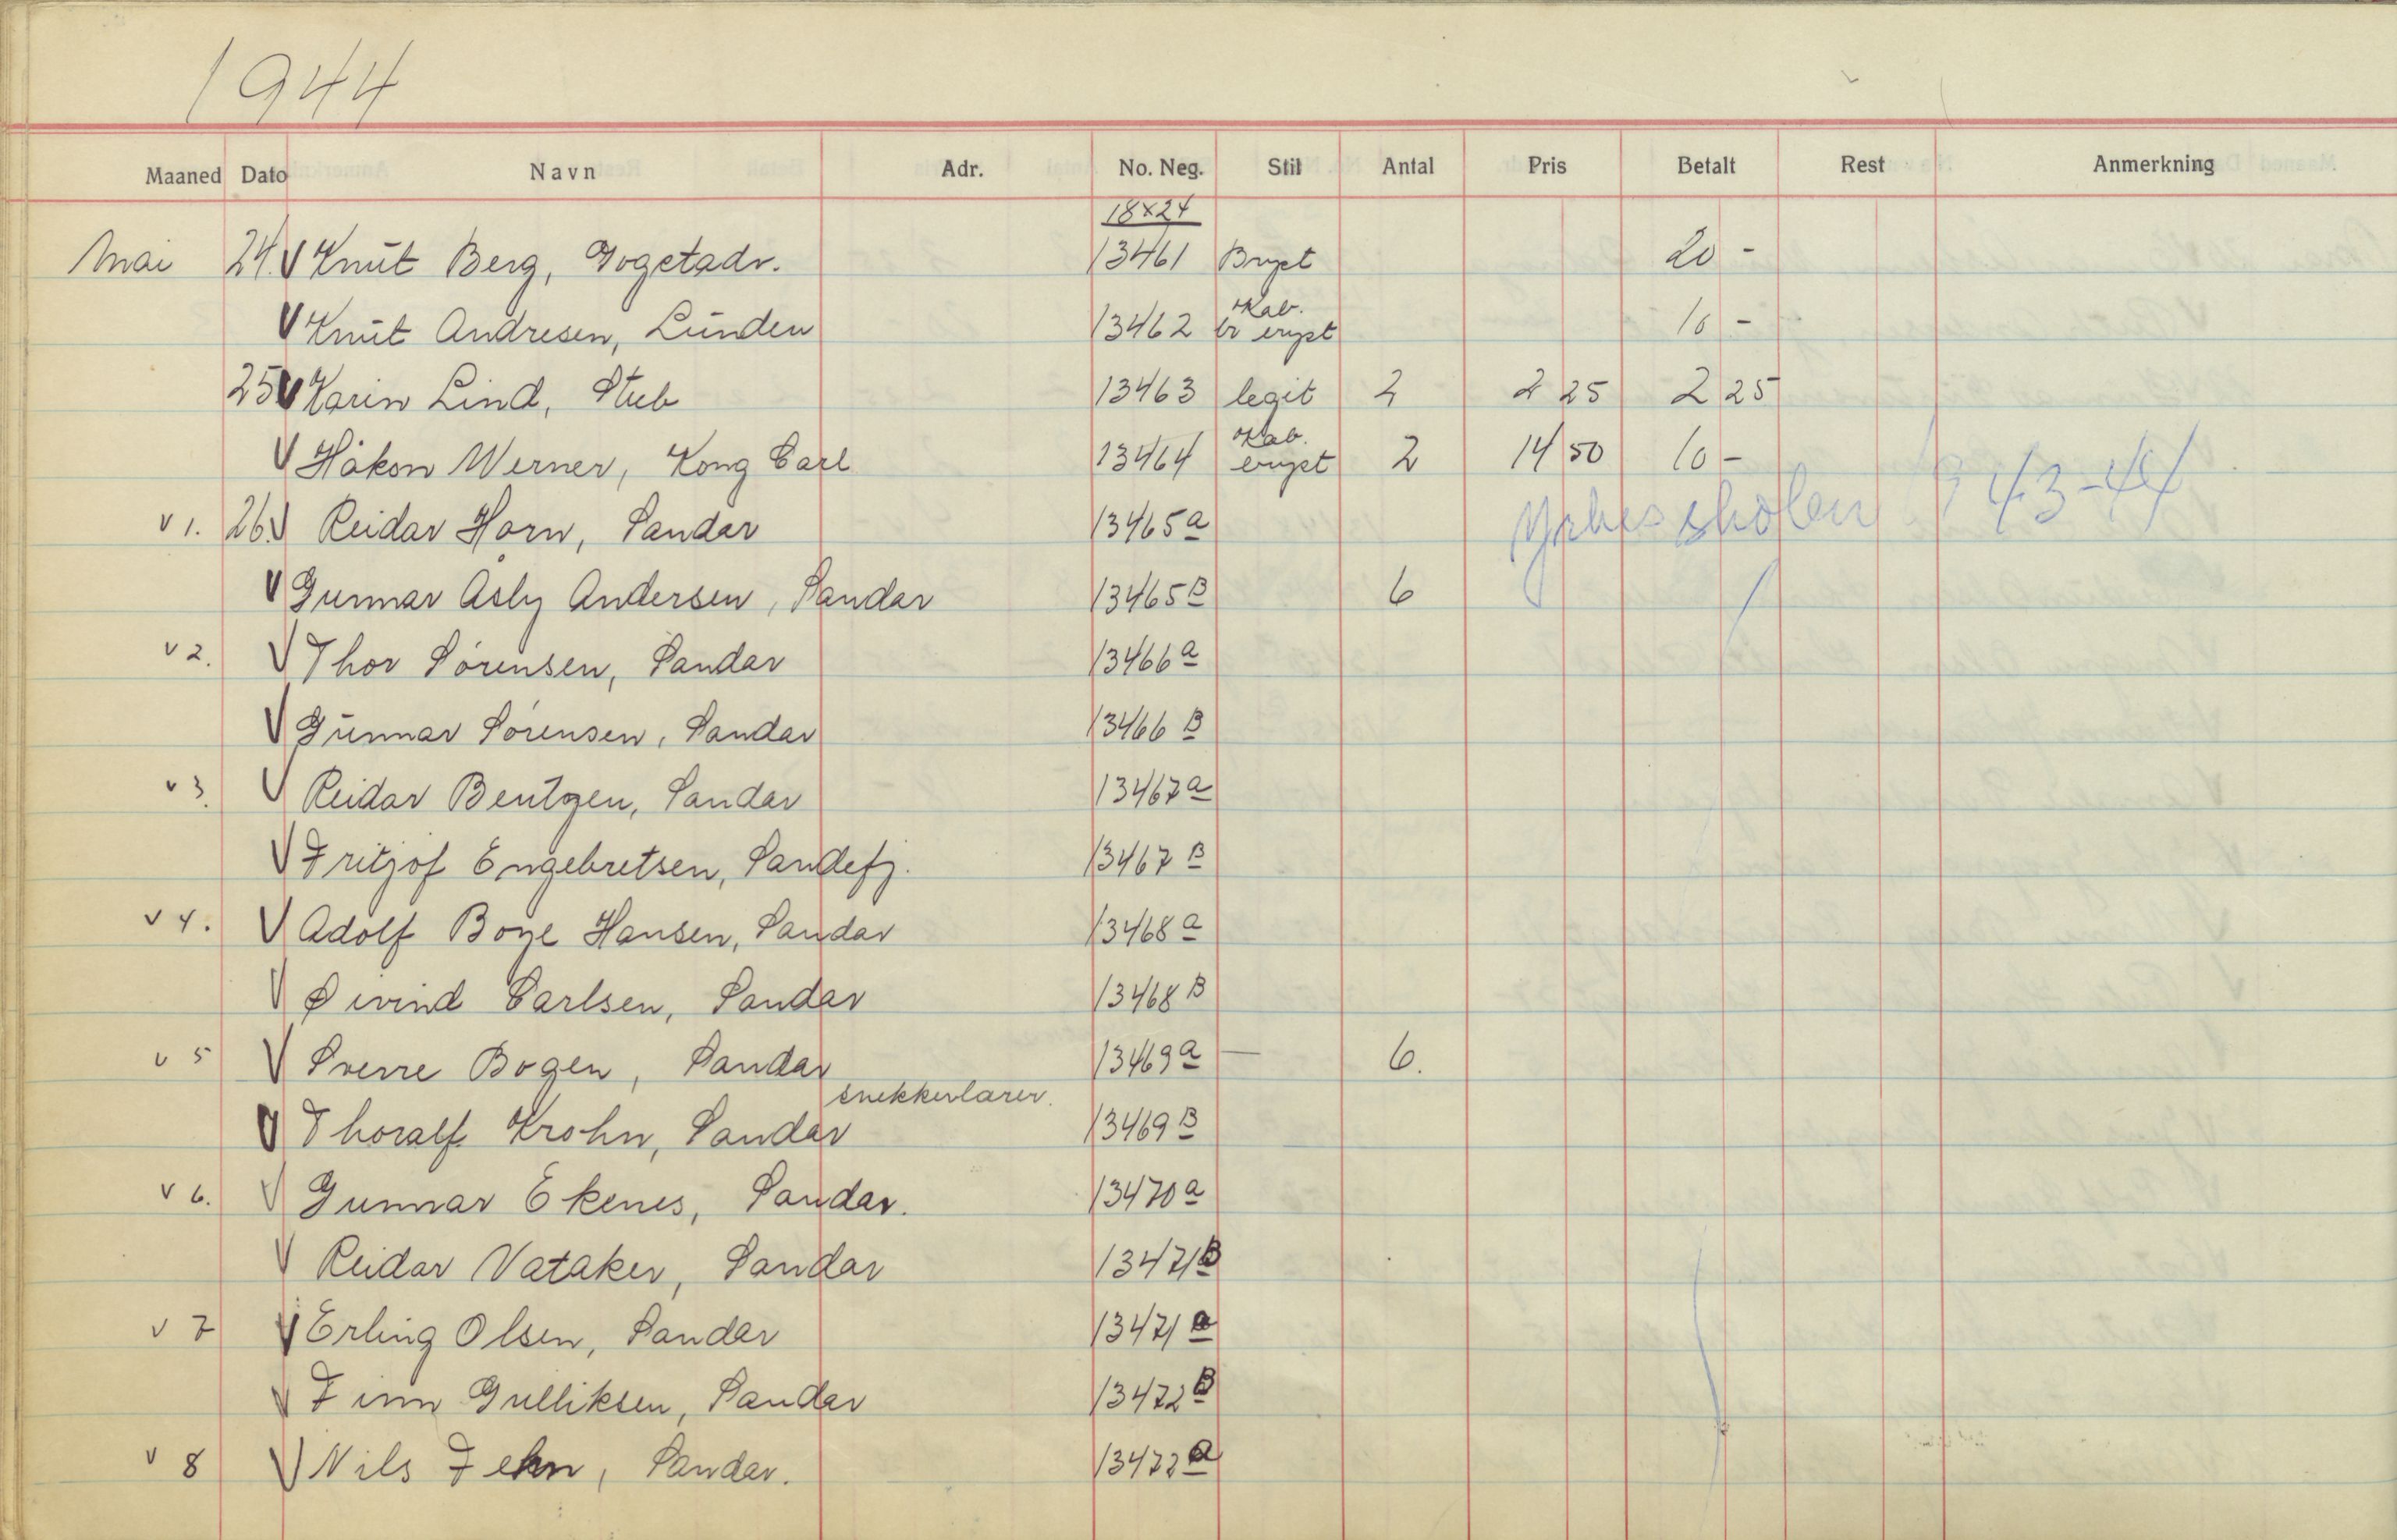 1944
Maaned Dato Navn Adr. No. Neg. Stil Antal Pris Betalt Rest Anmerkning
18x24
Mai 24. V Knut Berg, 13461 20 -
Kab.
V Knut Andresen, Lunden 13462 10 -
25 V Karin Lind, Stub 13463 legit 2 2 25 2 25
Kab.
V Håkon Werner, Kong Carl 13464 2 14 50 10 -
v 1. 26. V Reidar Horn, Sandar 13465 a Yrkesskolen 43-44
V Gunnar Asby Andersen, Sandar 13465 B 6
v 2. V Thor Sörensen, Sandar 13466 a
V Gunnar Sörensen, Sandar 13466 B
v 3. V Reidar Bentzen, Sandar 13467 a
V Fritjof Engebretsen, Sandefj. 13467 B
v 4. V Adolf Boye Hansen, Sandar 13468 a
V Øivind Carlsen, Sandar 13468 B
v 5 V Sverre Bogen, Sandar 13469 a — 6.
snekkerlærer.
V Thoralf Krohn, Sandar 13469 B
v 6. V Gunnar Ekenes, Sandar. 13470 a
V Reidar Vataker, Sandar 13471 B
v 7 V Erling Olsen, Sandar 13471 a
V Finn Gulliksen, Sandar 13472 B
v 8 V Nils Fehn, Sandar. 13472 a